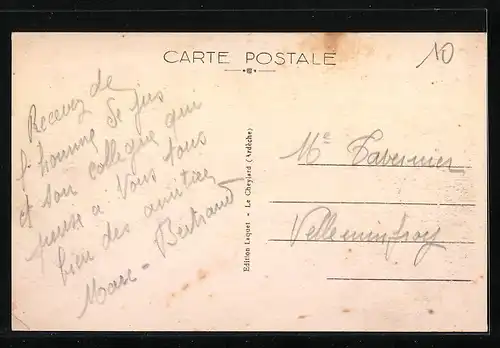 CARTE POSTALE
10
Recevez de
l'homme de
et son collègue qui
pense à vous tous
bien des amitiés
Marc - Bertrand
Edition Laquet - Le Cheylard (Ardèche)
Me Tavernier
Velleminfroy